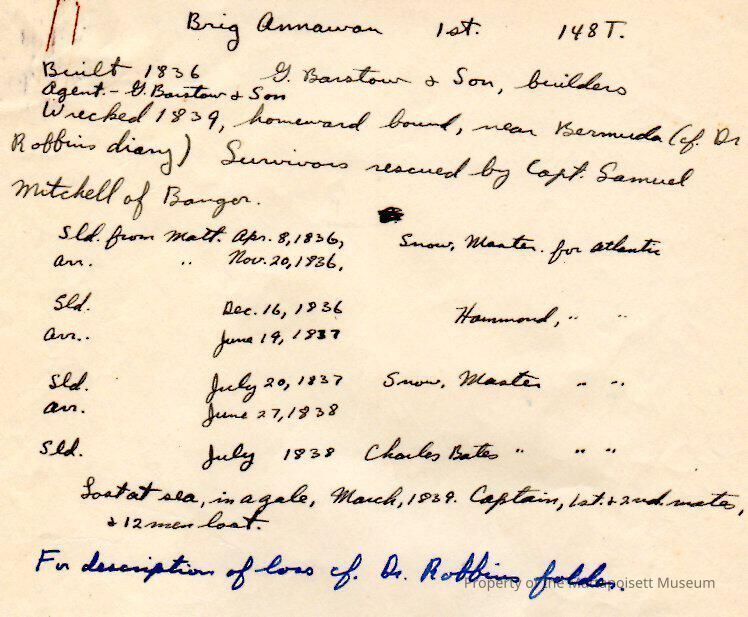 Brig Annawan 1st. 148 T.
Built 1836 G. Barstow & Son, builders
Agent - G. Barstow & Son
Wrecked 1839, homeward bound, near Bermuda (cf. Dr
Robbins diary) Survivors rescued by Capt. Samuel
Mitchell of Bangor.
Sld. from Matt. Apr. 8, 1836, Snow, Master. for Atlantic
arr. " Nov. 20, 1836,
Sld. Dec. 16, 1836 Hammond, " "
arr. June 19, 1837
Sld. July 20, 1837 Snow, Master " "
arr. June 27, 1838
Sld. July 1838 Charles Bates " " "
Lost at sea, in a gale, March, 1839. Captain, 1st. & 2nd. mates,
& 12 men lost.
For description of loss cf. Dr. Robbins folder.
Property of the Mattapoisett Museum